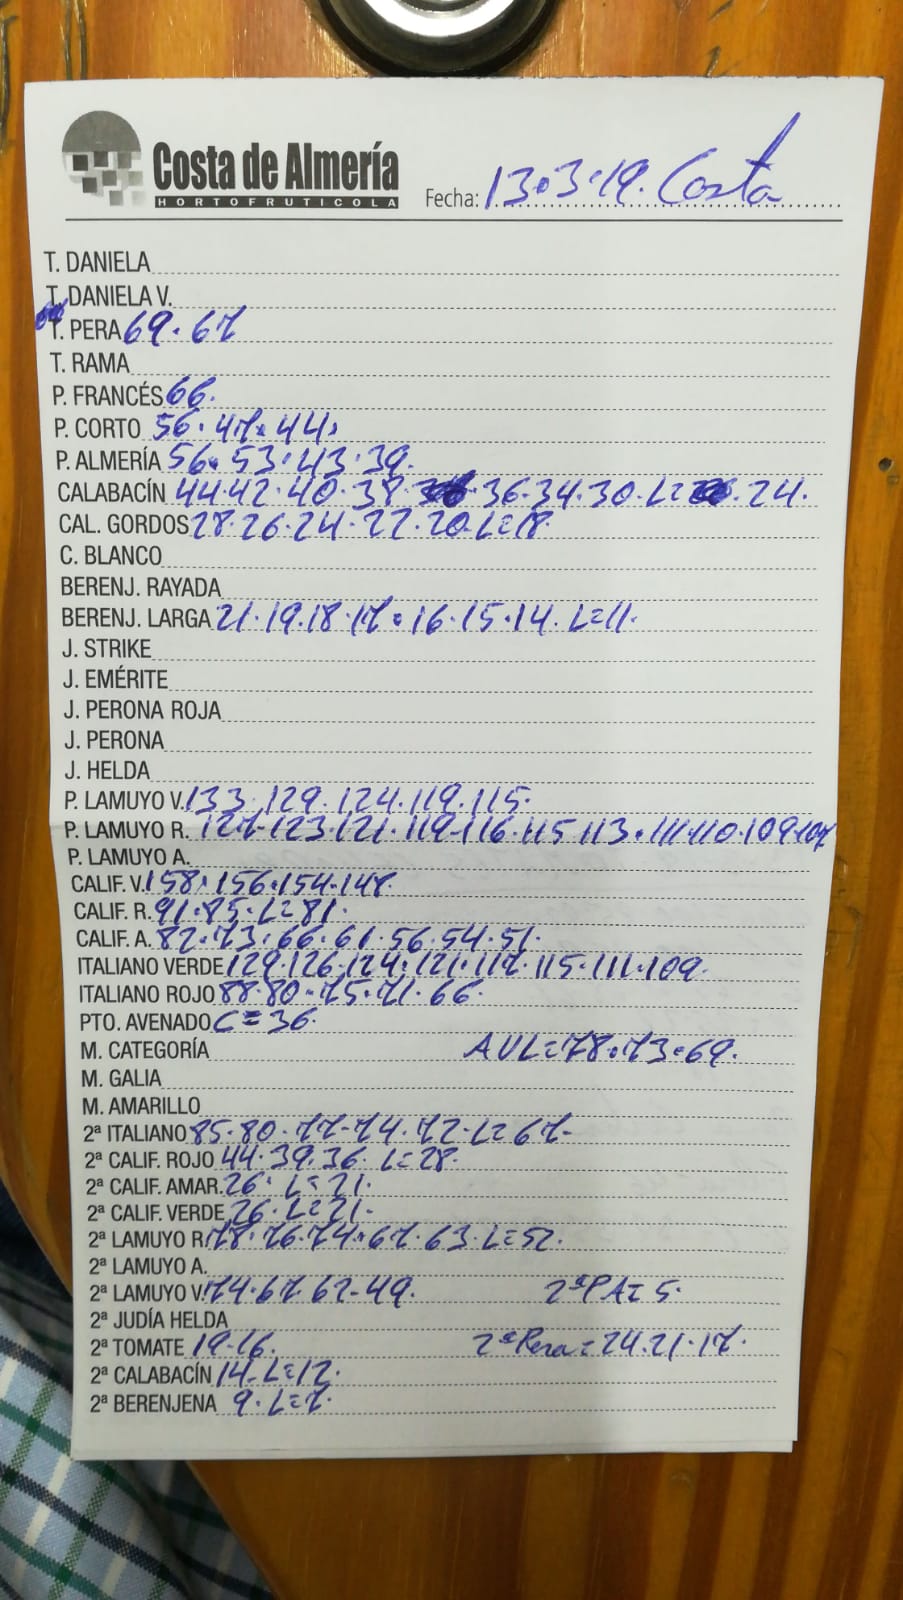 Costa de Almería
HORTOFRUTICOLA
Fecha: 13.3.19. Costa
T. DANIELA
T. DANIELA V.
T. PERA 69. 67
T. RAMA
P. FRANCÉS 66.
P. CORTO 56. 47. 44.
P. ALMERÍA 56. 53. 43. 39.
CALABACÍN 44.42. 40. 38. 36.34.30. L= 24.
CAL. GORDOS 28.26.24.22.20.L=18
C. BLANCO
BERENJ. RAYADA
BERENJ. LARGA 21.19.18.17. 16.15.14. L=11.
J. STRIKE
J. EMÉRITE
J. PERONA ROJA
J. PERONA
J. HELDA
P. LAMUYO V. 133.129.124.119.115.
P. LAMUYO R. 127-123.121.119-116.115 113.111.110.109.107
P. LAMUYO A.
CALIF. V. 158. 156.154.148.
CALIF. R. 91.85.L=81.
CALIF. A. 82.73.66.61.56.54.51.
ITALIANO VERDE 129.126.124.121.117.115.111.109.
ITALIANO ROJO 88.80.75.71.66.
PTO. AVENADO C=36.
M. CATEGORÍA AUL=78.73.69.
M. GALIA
M. AMARILLO
2ª ITALIANO 85.80.77-74.72.L=67-
2ª CALIF. ROJO 44.39.36. L=28.
2ª CALIF. AMAR. 26. L=21.
2ª CALIF. VERDE 26. L=21.
2ª LAMUYO R. 78.76.74.67.63.L=52.
2ª LAMUYO A.
2ª LAMUYO V. 74.67.62-49. 2ªPA= 5.
2ª JUDÍA HELDA
2ª TOMATE 19-16. 2ªPera=24.21.17.
2ª CALABACÍN 14.L=12.
2ª BERENJENA 9. L=7.